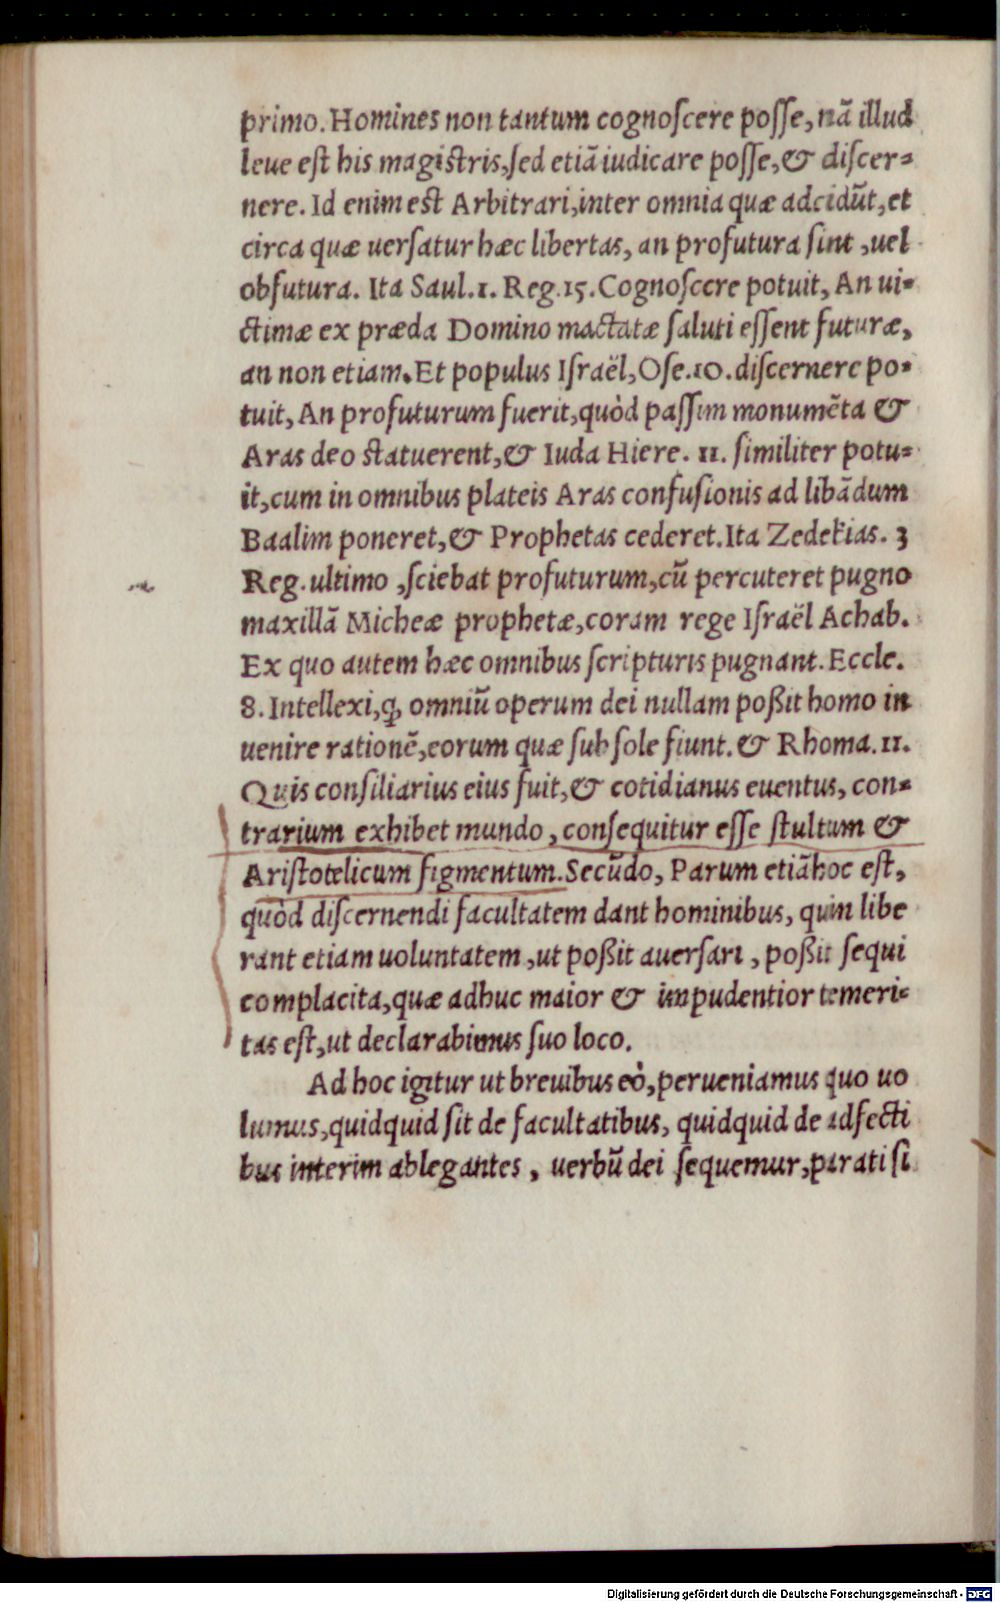 primo. Homines non tantum cognoſcere poſſe, nã illud
leue eſt his magiſtris, ſed etiã iudicare poſſe, & diſcer-
nere. Id enim eſt Arbitrari, inter omnia quæ adcidũt, et
circa quæ uerſatur hæc libertas, an profutura ſint, uel
obfutura. Ita Saul. 1. Reg. 15. Cognoſcere potuit, An ui-
ctimæ ex præda Domino mactatæ ſaluti eſſent futuræ,
an non etiam. Et populus Iſraël, Oſe. 10. diſcernere po-
tuit, An profuturum fuerit, quòd paſſim monumẽta &
Aras deo ſtatuerent, & Iuda Hiere. 11. ſimiliter potu-
it, cum in omnibus plateis Aras confuſionis ad libãdum
Baalim poneret, & Prophetas cederet. Ita Zedekias. 3
Reg. ultimo, ſciebat profuturum, cũ percuteret pugno
maxillã Micheæ prophetæ, coram rege Iſraël Achab.
Ex quo autem hæc omnibus ſcripturis pugnant. Eccle.
8. Intellexi, ꝙ omniũ operum dei nullam poßit homo in
uenire rationẽ, eorum quæ ſub ſole fiunt. & Rhoma. 11.
Quis conſiliarius eius fuit, & cotidianus euentus, con-
trarium exhibet mundo, conſequitur eſſe ſtultum &
Ariſtotelicum figmentum. Secũdo, Parum etiã hoc eſt,
quòd diſcernendi facultatem dant hominibus, quin libe
rant etiam uoluntatem, ut poßit auerſari, poßit ſequi
complacita, quæ adhuc maior & impudentior temeri-
tas eſt, ut declarabimus ſuo loco.
Ad hoc igitur ut breuibus eò, perueniamus quo uo
lumus, quidquid ſit de facultatibus, quidquid de adfecti
bus interim ablegantes, uerbũ dei ſequemur, parati ſi
Digitalisierung gefördert durch die Deutsche Forschungsgemeinschaft - DFG